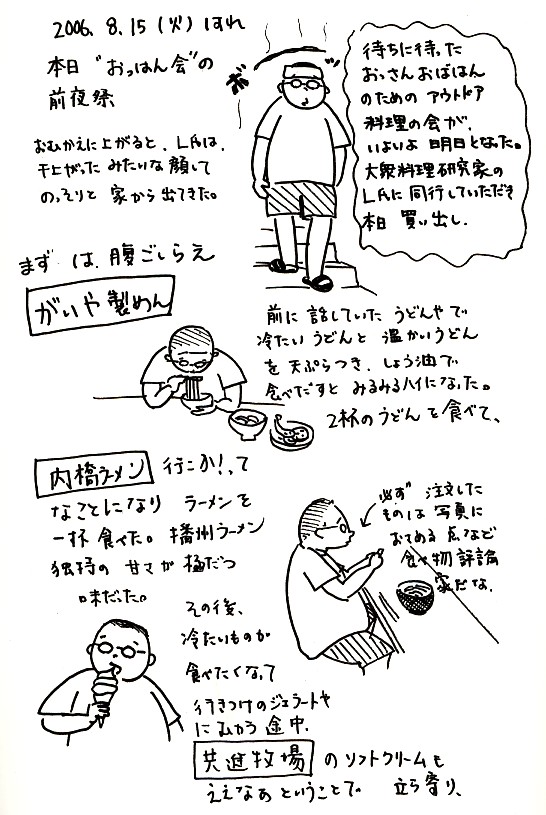 2006. 8. 15 (火) はれ
本日 "おっはん会" の
前夜祭
ボーッ
待ちに待った
おっさんおばはん
のための アウトドア
料理の会が、
いよいよ 明日となった。
大衆料理研究家の
L氏に 同行していただき
本日 買い出し.
おむかえに上がると、L氏は、
干上がった みたいな 顔して
のっそりと 家から 出てきた。
まず は、腹ごしらえ
がいや製めん
前に 話していた うどんやで
冷たい うどんと 温かいうどん
を 天ぷらつき、しょう油で
食べだすと みるみるハイになった。
2杯のうどん を 食べて、
内橋ラーメン 行こか!って
なことになり ラーメンを
一杯 食べた。播州ラーメン
独特の 甘さが 極だつ
味だった。
必ず 注文した
ものは 写真に
おさめる 点など
食べ物 評論
家だな.
その後、
冷たいものが
食べたくなって
行きつけの ジェラートや
に むかう 途中.
共進牧場 の ソフトクリームも
ええなぁ ということで 立ち寄り、